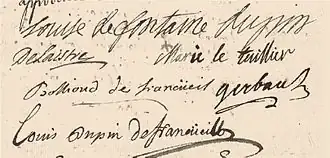 Louise de fontaine dupin
Delaistre Marie le tellier
Bollioud de francüeil gerbault
Louis Dupin de francüeil